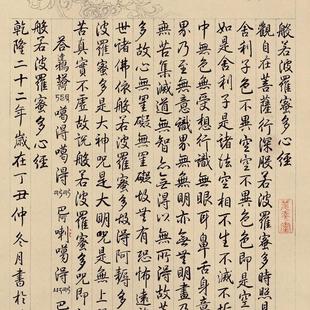 般若波羅蜜多心經
觀自在菩薩行深般若波羅蜜多時照見
舍利子色不異空空不異色色即是空
如是舍利子是諸法空相不生不滅不垢
中無色無受想行識無眼耳鼻舌身意
界乃至無意識界無無明亦無無明盡乃
無苦集滅道無智亦無得以無所得
多故心無罣礙無罣礙故無有恐怖遠
世諸佛依般若波羅蜜多故得阿耨多
波羅蜜多是大神咒是大明咒是無上
苦真實不虛故說般若波羅蜜多咒即
噶得噶得巴喇噶得巴
般若波羅蜜多心經
乾隆二十二年歲在丁丑仲冬月書於